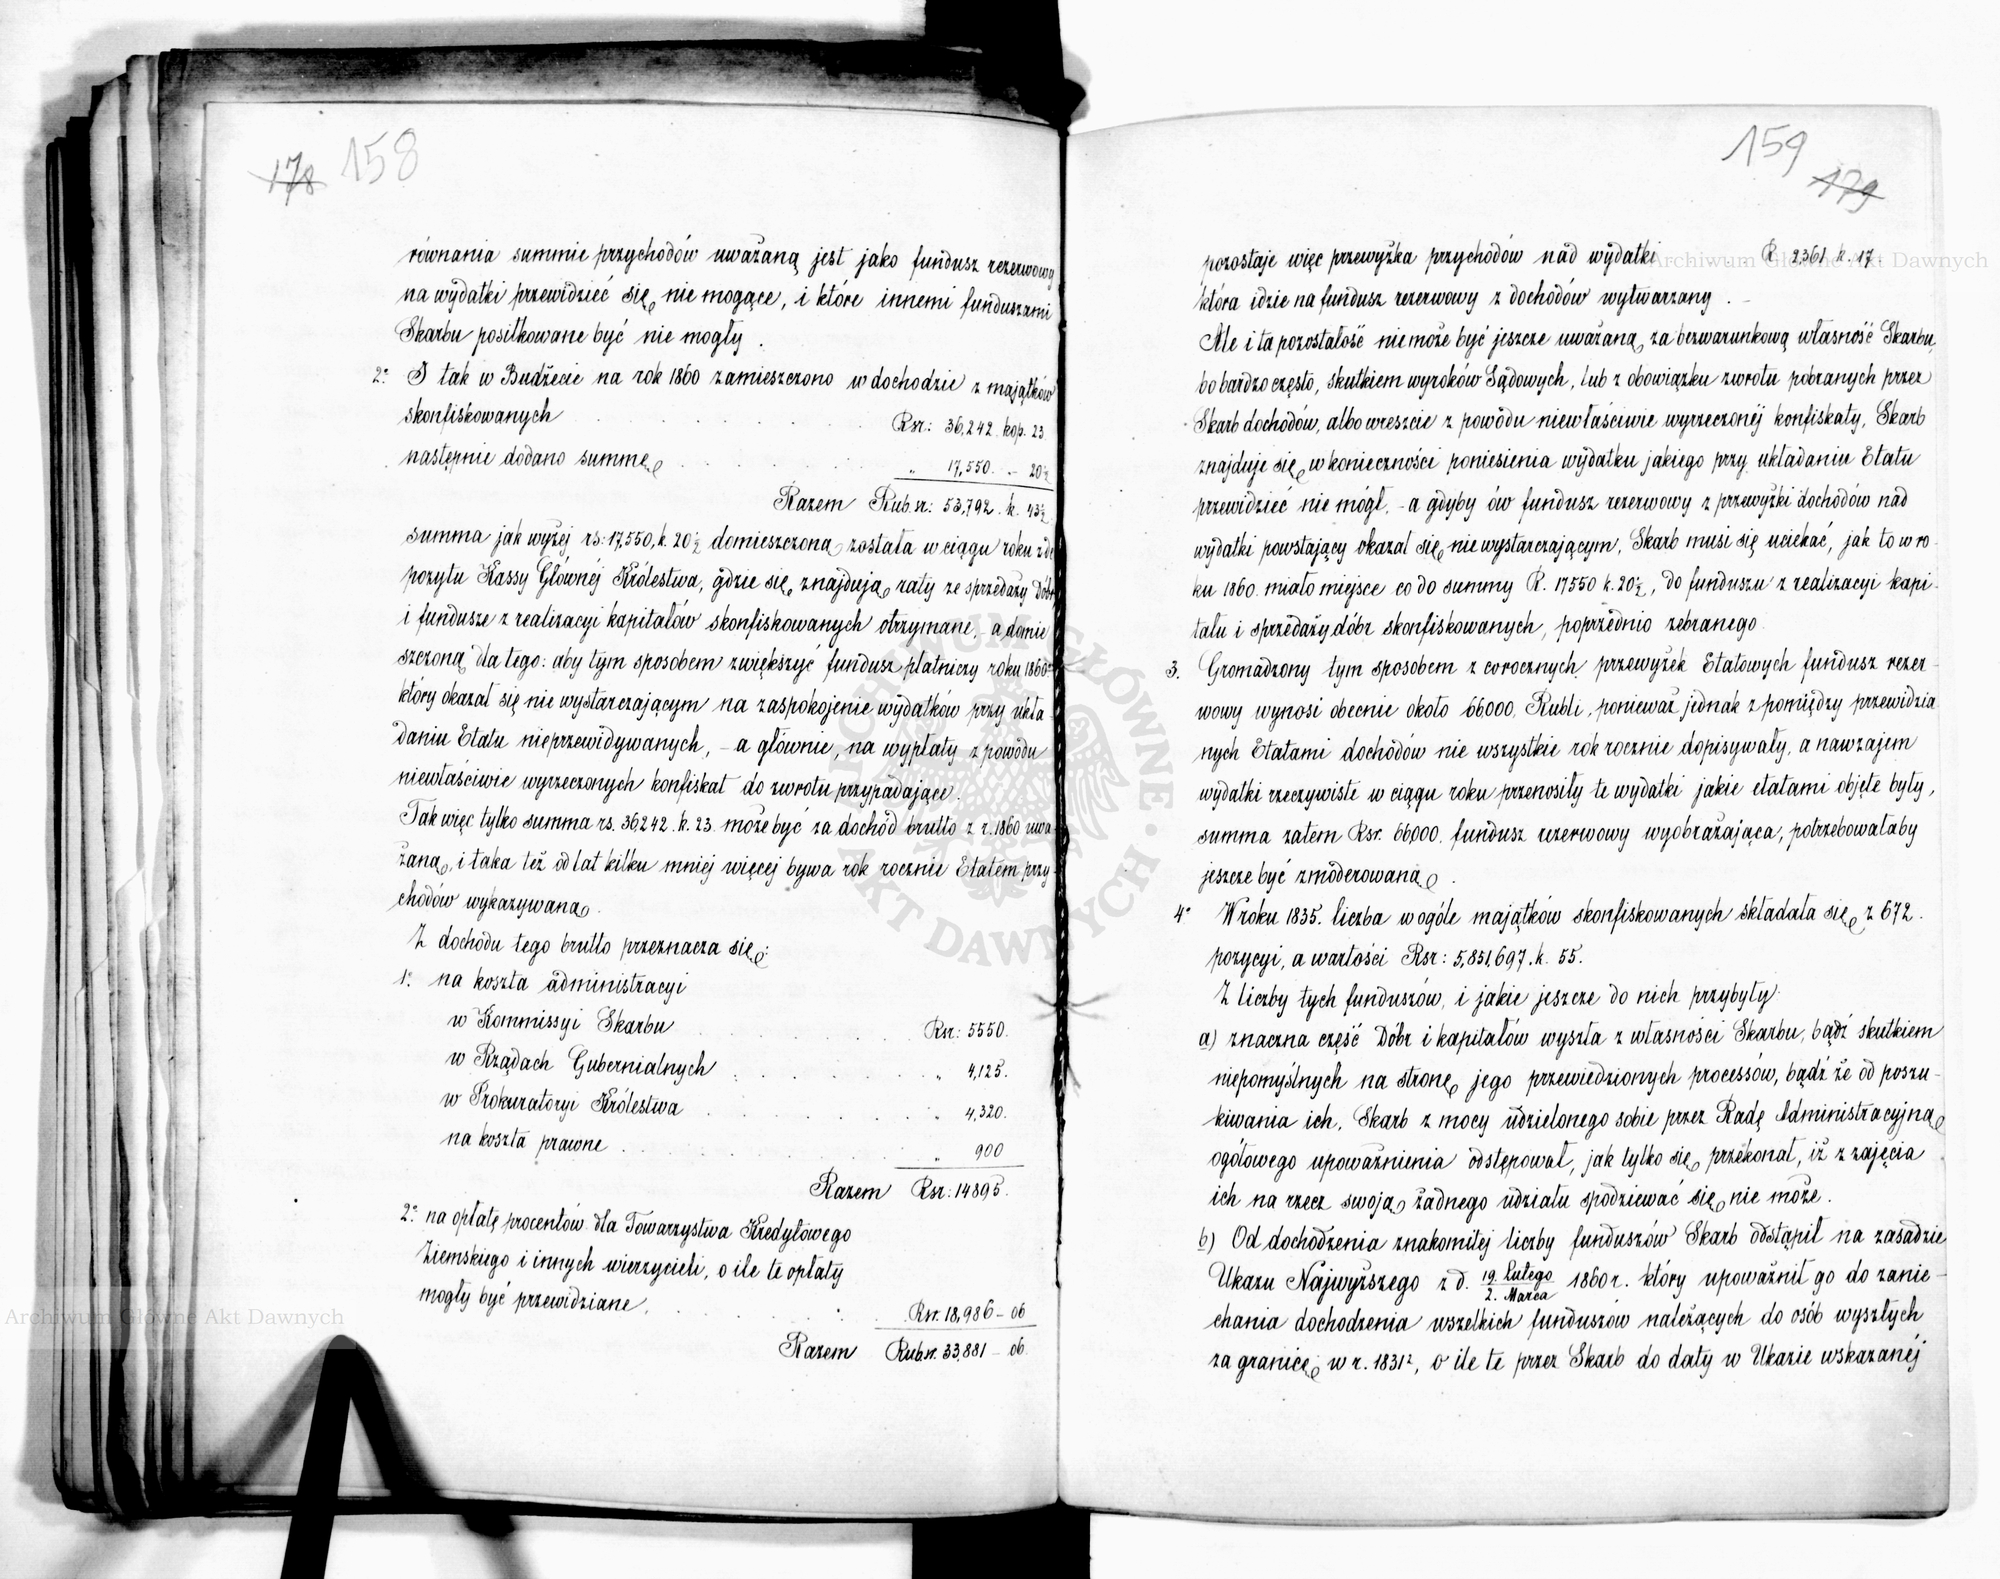 178 158
równania summie przychodów uważaną jest jako fundusz rezerwowy
na wydatki przewidzieć się nie mogące, i które innemi funduszami
Skarbu posiłkowane być nie mogły.
2° I tak w Budżecie na rok 1860 zamieszczono w dochodzie z majątków
skonfiskowanych . . . . . . . Rsr: 36,242 kop. 23
następnie dodano summę . . . . . . „ 17,550. – 20½
Razem Rub. sr: 53,792. k. 43½
summa jak wyżej rs: 17,550, k. 20½ domieszczoną została w ciągu roku z de
pozytu Kassy Głównéj Królestwa, gdzie się znajdują raty ze sprzedaży Dóbr
i fundusze z realizacyi kapitałów skonfiskowanych otrzymane, – a domie
szczoną dla tego: aby tym sposobem zwiększyć fundusz płatniczy roku 1860go
który okazał się nie wystarczającym na zaspokojenie wydatków przy ukła
daniu Etatu nieprzewidywanych, – a głównie, na wypłaty z powodu
niewłaściwie wyrzeczonych konfiskat do zwrotu przypadające.
Tak więc tylko summa rs. 36242. k. 23. może być za dochód brutto z r. 1860 uwa
żaną, i taka też od lat kilku mniej więcej bywa rok rocznie Etatem przy
chodów wykazywaną.
Z dochodu tego brutto przeznacza się:
1° na koszta administracyi
w Kommissyi Skarbu . . . . . Rsr: 5550.
w Rządach Gubernialnych . . . . . „ 4,125.
w Prokuratoryi Królestwa . . . . . „ 4,320.
na koszta prawne . . . . . . „ 900
Razem Rsr: 14895.
2° na opłatę procentów dla Towarzystwa Kredytowego
Ziemskiego i innych wierzycieli, o ile te opłaty
mogły być przewidziane, . . . . Rsr. 18,986 – 06
Razem Rub. sr. 33,881 – 06.
159 179
pozostaje więc przewyżka przychodów nad wydatki R. 2361 k. 17.
która idzie na fundusz rezerwowy z dochodów wytwarzany. –
Ale i ta pozostałość nie może być jeszcze uważaną za bezwarunkową własność Skarbu,
bo bardzo często, skutkiem wyroków Sądowych, lub z obowiązku zwrotu pobranych przez
Skarb dochodów, albo wreszcie z powodu niewłaściwie wyrzeczonéj konfiskaty, Skarb
znajduje się w konieczności poniesienia wydatku jakiego przy układaniu Etatu
przewidzieć nie mógł, – a gdyby ów fundusz rezerwowy z przewyżki dochodów nad
wydatki powstający okazał się niewystarczającym, Skarb musi się uciekać, jak to w ro-
ku 1860. miało miejsce co do summy R. 17550 k. 20½, do funduszu z realizacyi kapi-
tału i sprzedaży dóbr skonfiskowanych, poprzednio zebranego
3. Gromadzony tym sposobem z corocznych przewyżek Etatowych fundusz rezer-
wowy wynosi obecnie około 66,000, Rubli, ponieważ jednak z pomiędzy przewidzia
nych Etatami dochodów nie wszystkie rok rocznie dopisywały, a nawzajem
wydatki rzeczywiste w ciągu roku przenosiły te wydatki jakie etatami objęte były,
summa zatem Rsr. 66,000. fundusz rezerwowy wyobrażająca, potrzebowałaby
jeszcze być zmoderowaną.
4° W roku 1835. liczba w ogóle majątków skonfiskowanych składała się z 672.
pozycyi, a wartości Rsr: 5,851,697. k. 55.
Z liczby tych funduszów, i jakie jeszcze do nich przybyły
a) znaczna część Dóbr i kapitałów wyszła z własności Skarbu, bądź skutkiem
niepomyślnych na stronę jego przewiedzionych processów, bądź że od poszu-
kiwania ich, Skarb z mocy udzielonego sobie przez Radę Administracyjną
ogólowego upoważnienia odstępował, jak tylko się przekonał, iż z zajęcia
ich na rzecz swoją żadnego udziału spodziewać się nie może.
b) Od dochodzenia znakomitej liczby funduszów Skarb odstąpił na zasadzie
Ukazu Najwyższego z d. 19 Lutego / 2. Marca 1860 r. który upoważnił go do zanie-
chania dochodzenia wszelkich funduszów należących do osób wyszłych
za granicę w r. 1831, o ile te przez Skarb do daty w Ukazie wskazanéj
Archiwum Główne Akt Dawnych
Archiwum Główne Akt Dawnych
ARCHIWUM GŁÓWNE AKT DAWNYCH